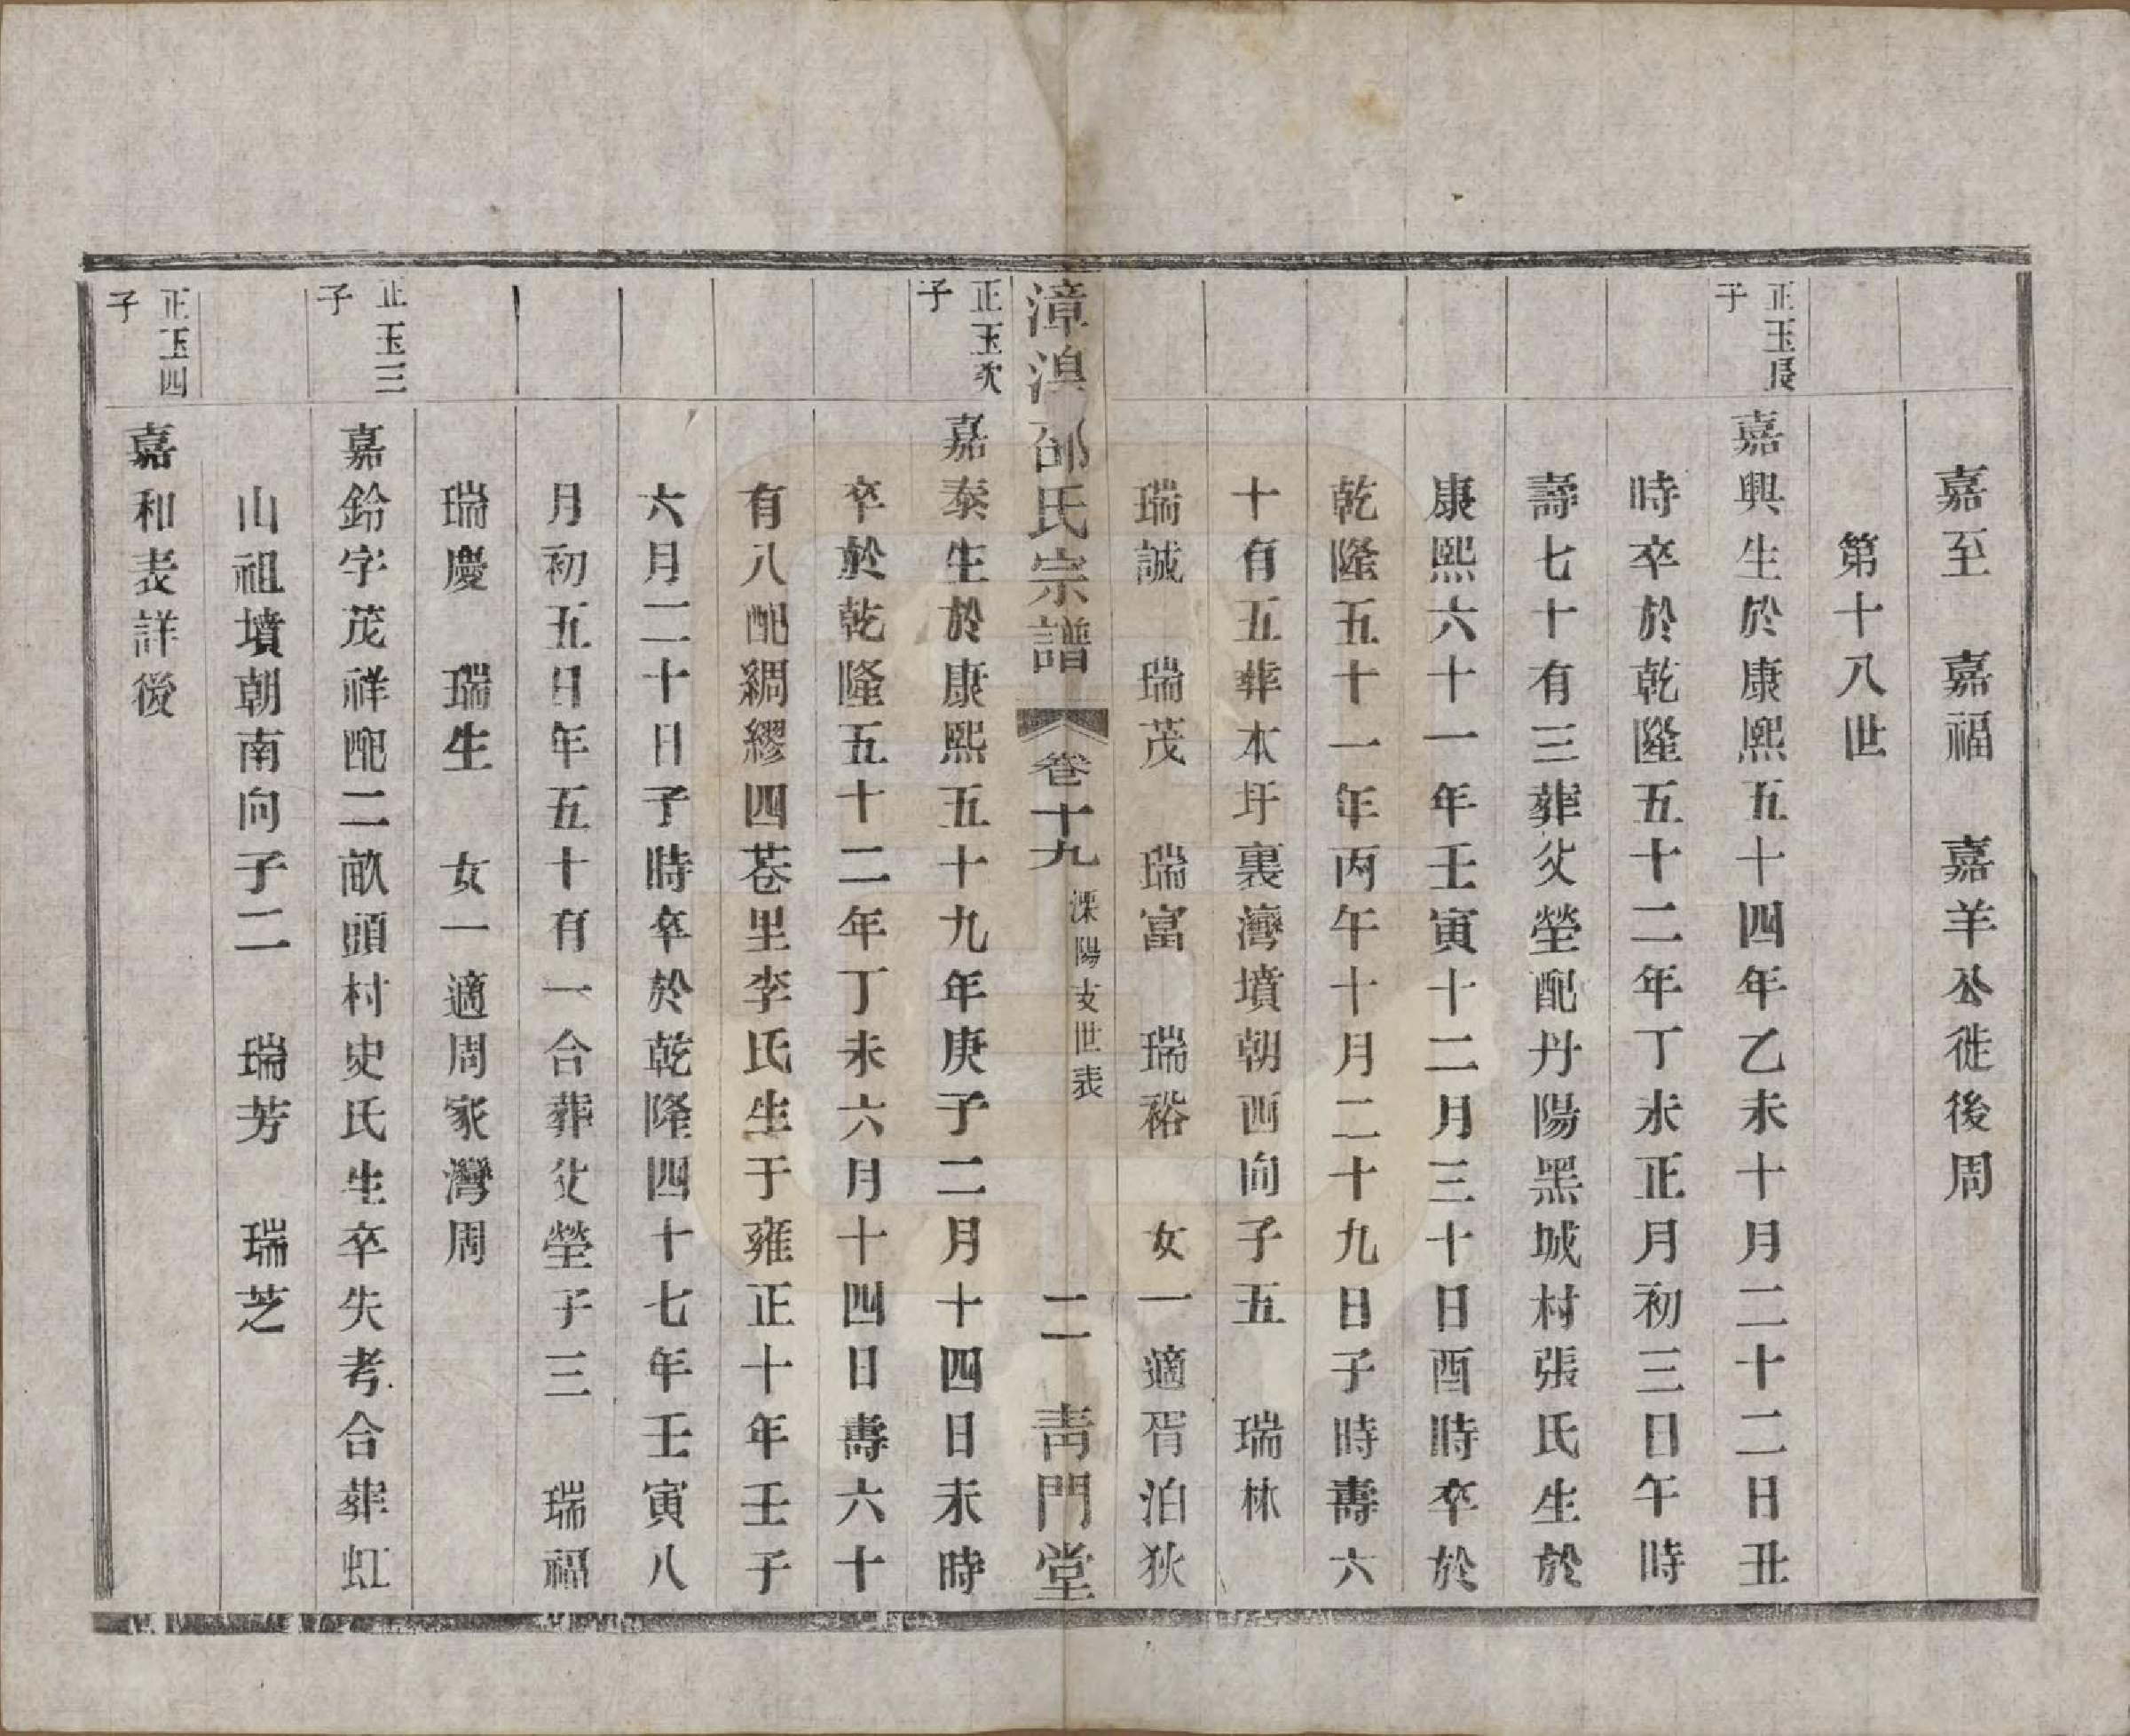 嘉至　嘉福　嘉羊公徙後周
第十八世
正玉長子
嘉興生於康熙五十四年乙未十月二十二日丑
時卒於乾隆五十二年丁未正月初三日午時
壽七十有三葬父塋配丹陽黑城村張氏生於
康熙六十一年壬寅十二月三十日酉時卒於
乾隆五十一年丙午十月二十九日子時壽六
十有五葬本圩裏灣墳朝西向子五　瑞林
瑞誠　瑞茂　瑞富　瑞裕　女一適胥泊狄
漳湨邵氏宗譜　卷十九　溧陽支世表　二　靑門堂
正玉次子
嘉泰生於康熙五十九年庚子二月十四日未時
卒於乾隆五十二年丁未六月十四日壽六十
有八配綢繆四荅里李氏生于雍正十年壬子
六月二十日子時卒於乾隆四十七年壬寅八
月初五日年五十有一合葬父塋子三　瑞福
瑞慶　瑞生　女一適周家灣周
正玉三子
嘉鈴字茂祥配二畝頭村史氏生卒失考合葬虹
山祖墳朝南向子二　瑞芳　瑞芝
正玉四子
嘉和表詳後